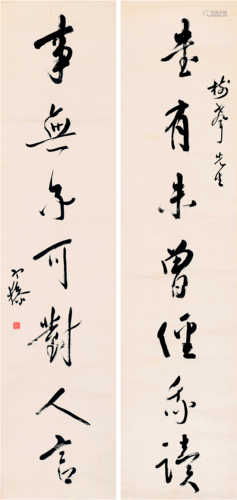 書有未曾經我讀
先生
事無不可對人言